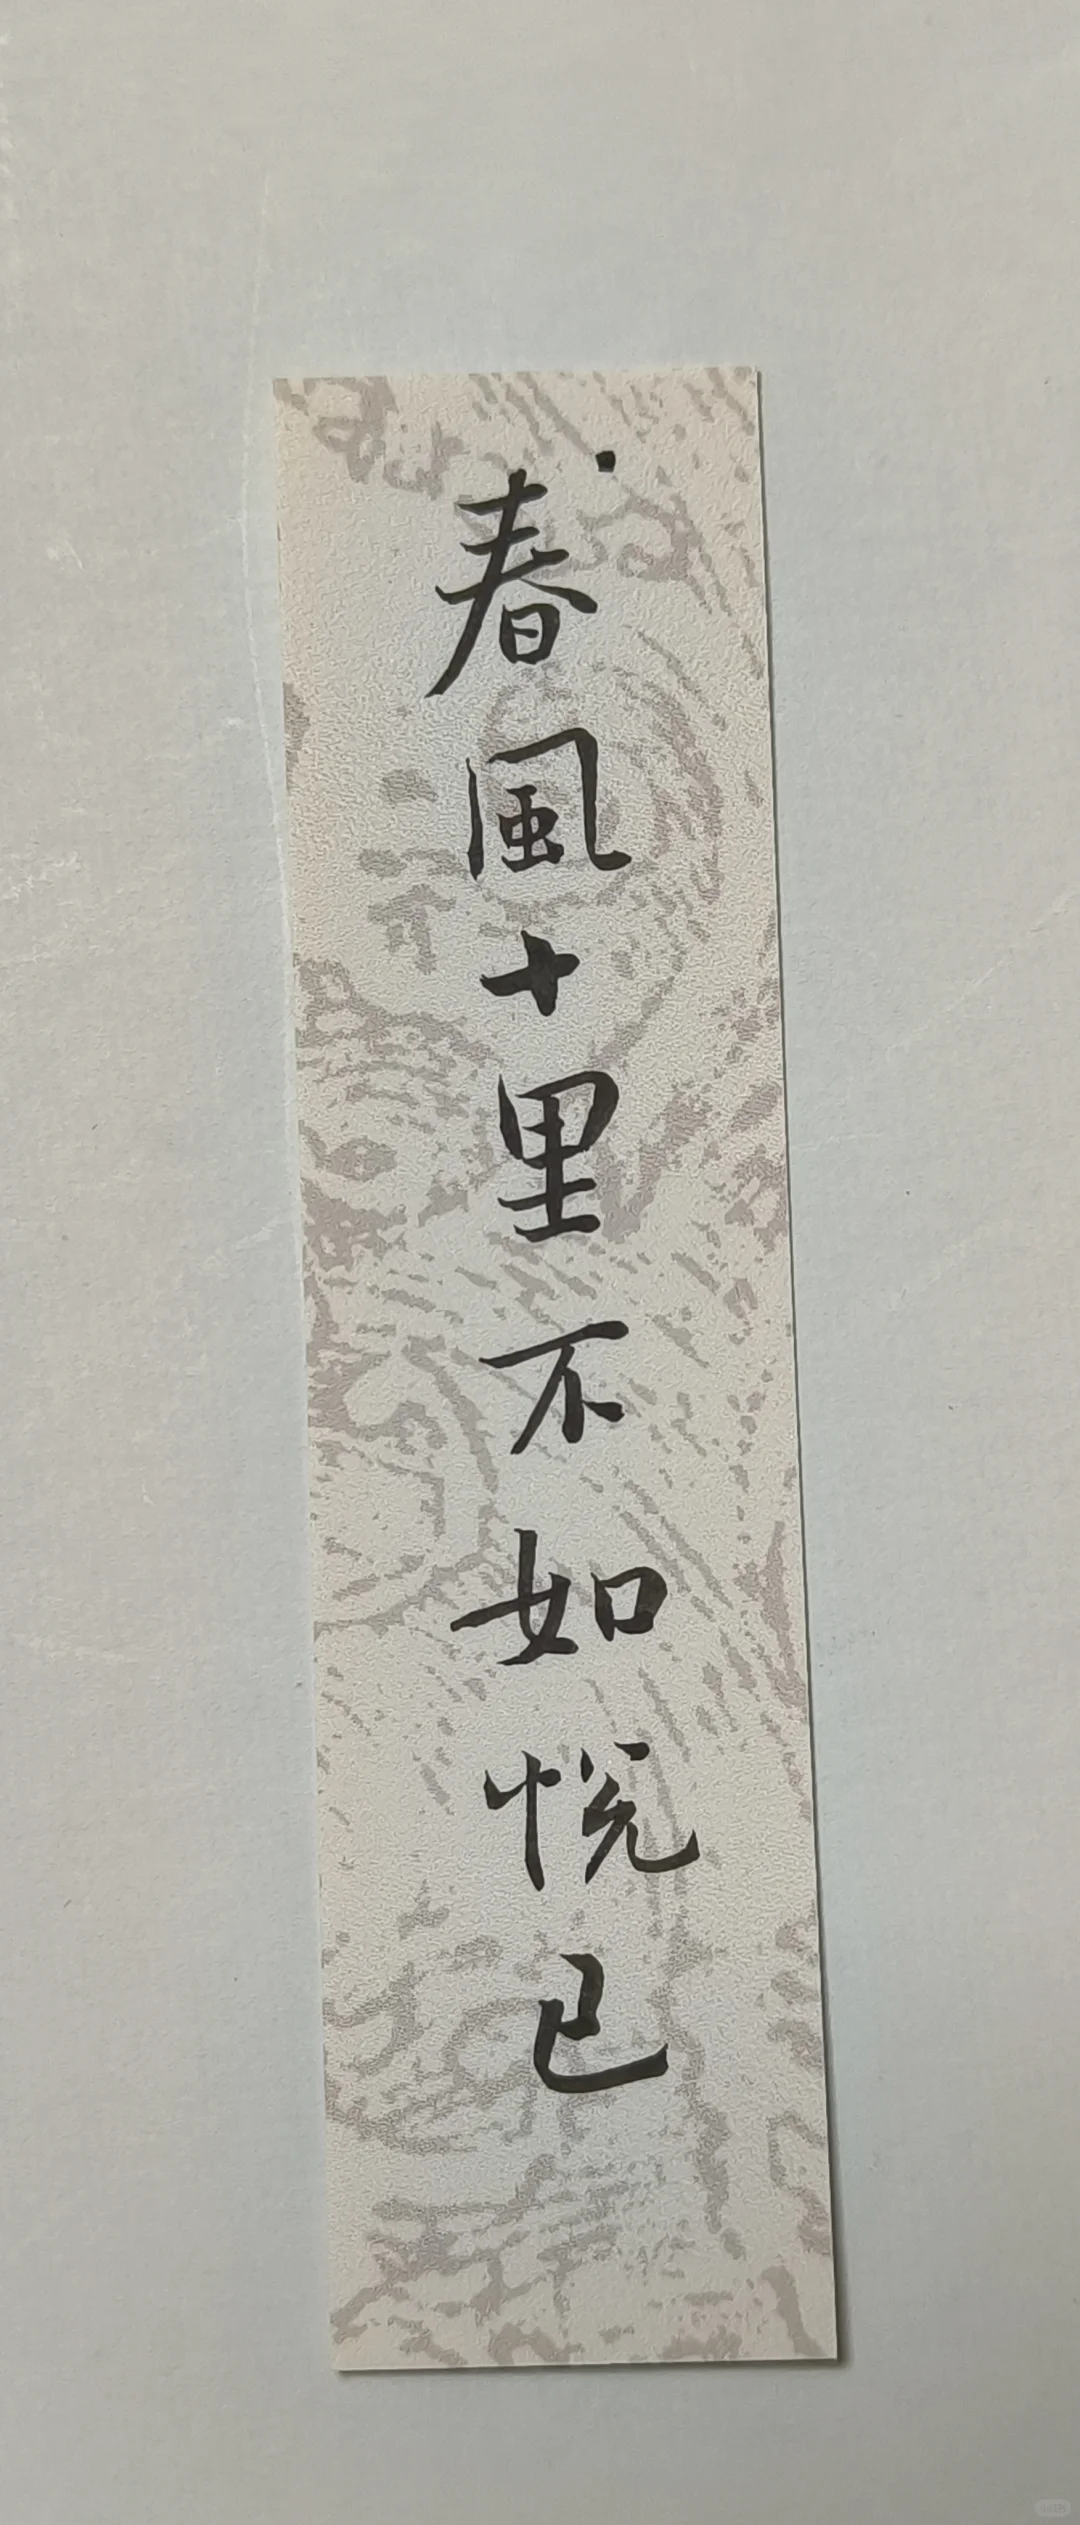 春風十里不如悦已